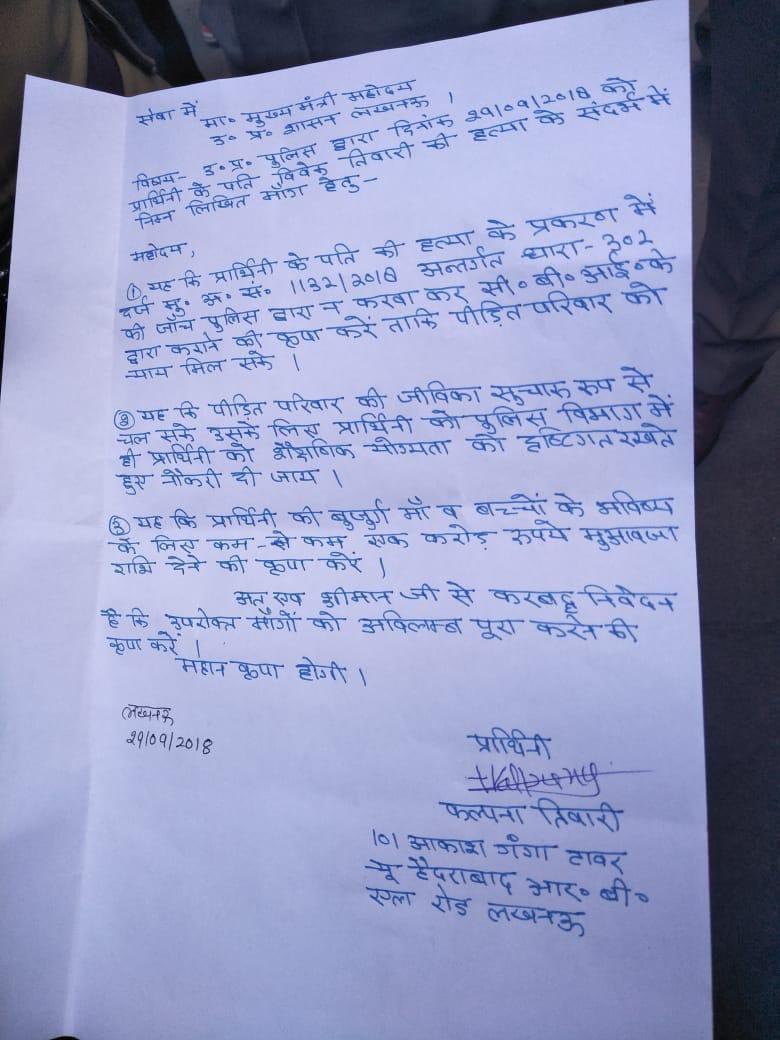 सेवा में
मा० मुख्य मंत्री महोदय
उ० प्र० शासन लखनऊ ।
विषय- उ० प्र० पुलिस द्वारा दिनांक 29/09/2018 को
प्रार्थिनी के पति विवेक तिवारी की हत्या के संदर्भ में
निम्न लिखित माँग हेतु-
महोदय,
① यह कि प्रार्थिनी के पति की हत्या के प्रकरण में
दर्ज मु० अ० सं० 1132/2018 अन्तर्गत धारा-302
की जाँच पुलिस द्वारा न करवा कर सी० बी० आई० के
द्वारा कराने की कृपा करें ताकि पीड़ित परिवार को
न्याय मिल सके ।
② यह कि पीड़ित परिवार की जीविका सुचारू रूप से
चल सके उसके लिए प्रार्थिनी को पुलिस विभाग में
ही प्रार्थिनी को शैक्षणिक योग्यता को दृष्टिगत रखते
हुए नौकरी दी जाय ।
③ यह कि प्रार्थिनी की बुजुर्ग माँ व बच्चों के भविष्य
के लिए कम-से कम एक करोड़ रुपये मुआवजा
राशि देने की कृपा करें ।
अत एव श्रीमान जी से करबद्ध निवेदन
है कि उपरोक्त माँगों को अविलम्ब पूरा करने की
कृपा करें ।
महान कृपा होगी ।
लखनऊ
29/09/2018
प्रार्थिनी
कल्पना तिवारी
101 आकाश गंगा टावर
न्यू हैदराबाद आर० बी०
एल रोड लखनऊ